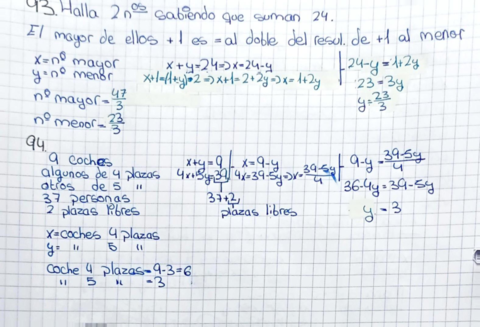 93. Halla 2nos sabiendo que suman 24.
El mayor de ellos +1 es = al doble del resul. de +1 al menor
x=nº mayor
y=nº menor
x+y=24=>x=24-y
x+1=(1+y)·2=>x+1=2+2y=>x=1+2y
24-y=1+2y
23=3y
y=23/3
nº mayor=47/3
nº menor=23/3
94.
9 coches
algunos de 4 plazas
otros de 5 "
37 personas
2 plazas libres
x+y=9
4x+5y=39
37+2
plazas libres
x=9-y
4x=39-5y=>x=39-5y/4
9-y=39-5y/4
36-4y=39-5y
y=3
x=coches 4 plazas
y= " 5 "
coche 4 plazas=9-3=6
" 5 " =3